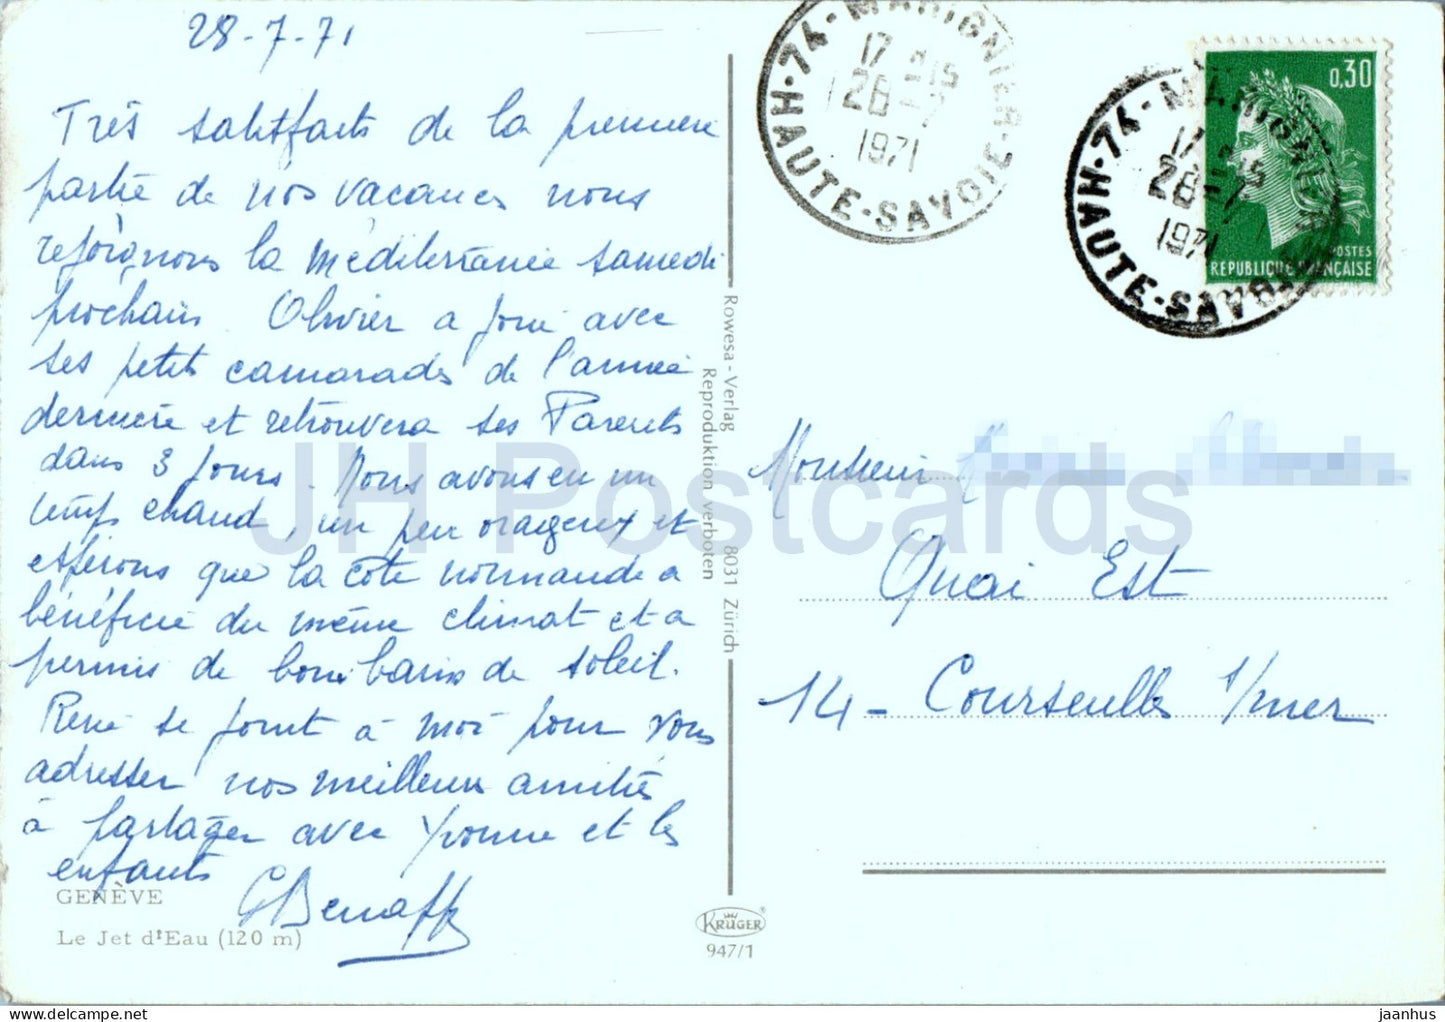 28-7-71
Très satisfaits de la première
partie de nos vacances nous
rejoignons la Méditerranée samedi
prochain. Olivier a joué avec
ses petits camarades de l'année
dernière et retrouvera ses Parents
dans 3 jours. Nous avons eu un
temps chaud, un peu orageux et
espérons que la côte normande a
bénéficié du même climat et a
permis de bons bains de soleil.
René se joint à moi pour vous
adresser nos meilleures amitiés
à partager avec Yvonne et les
enfants
GENÈVE
Le Jet d'Eau (120 m)
Rowesa-Verlag 8031 Zürich
Reproduktion verboten
KRÜGER
947/1
74-MARIGNIER-HAUTE-SAVOIE
17 H15
28-7
1971
74-MARIGNIER-HAUTE-SAVOIE
17 H15
28-7
1971
0,30
POSTES
REPUBLIQUE FRANÇAISE
Monsieur
Quai Est
14- Courseulles s/mer
JH Postcards
jaanhus - delcampe.net